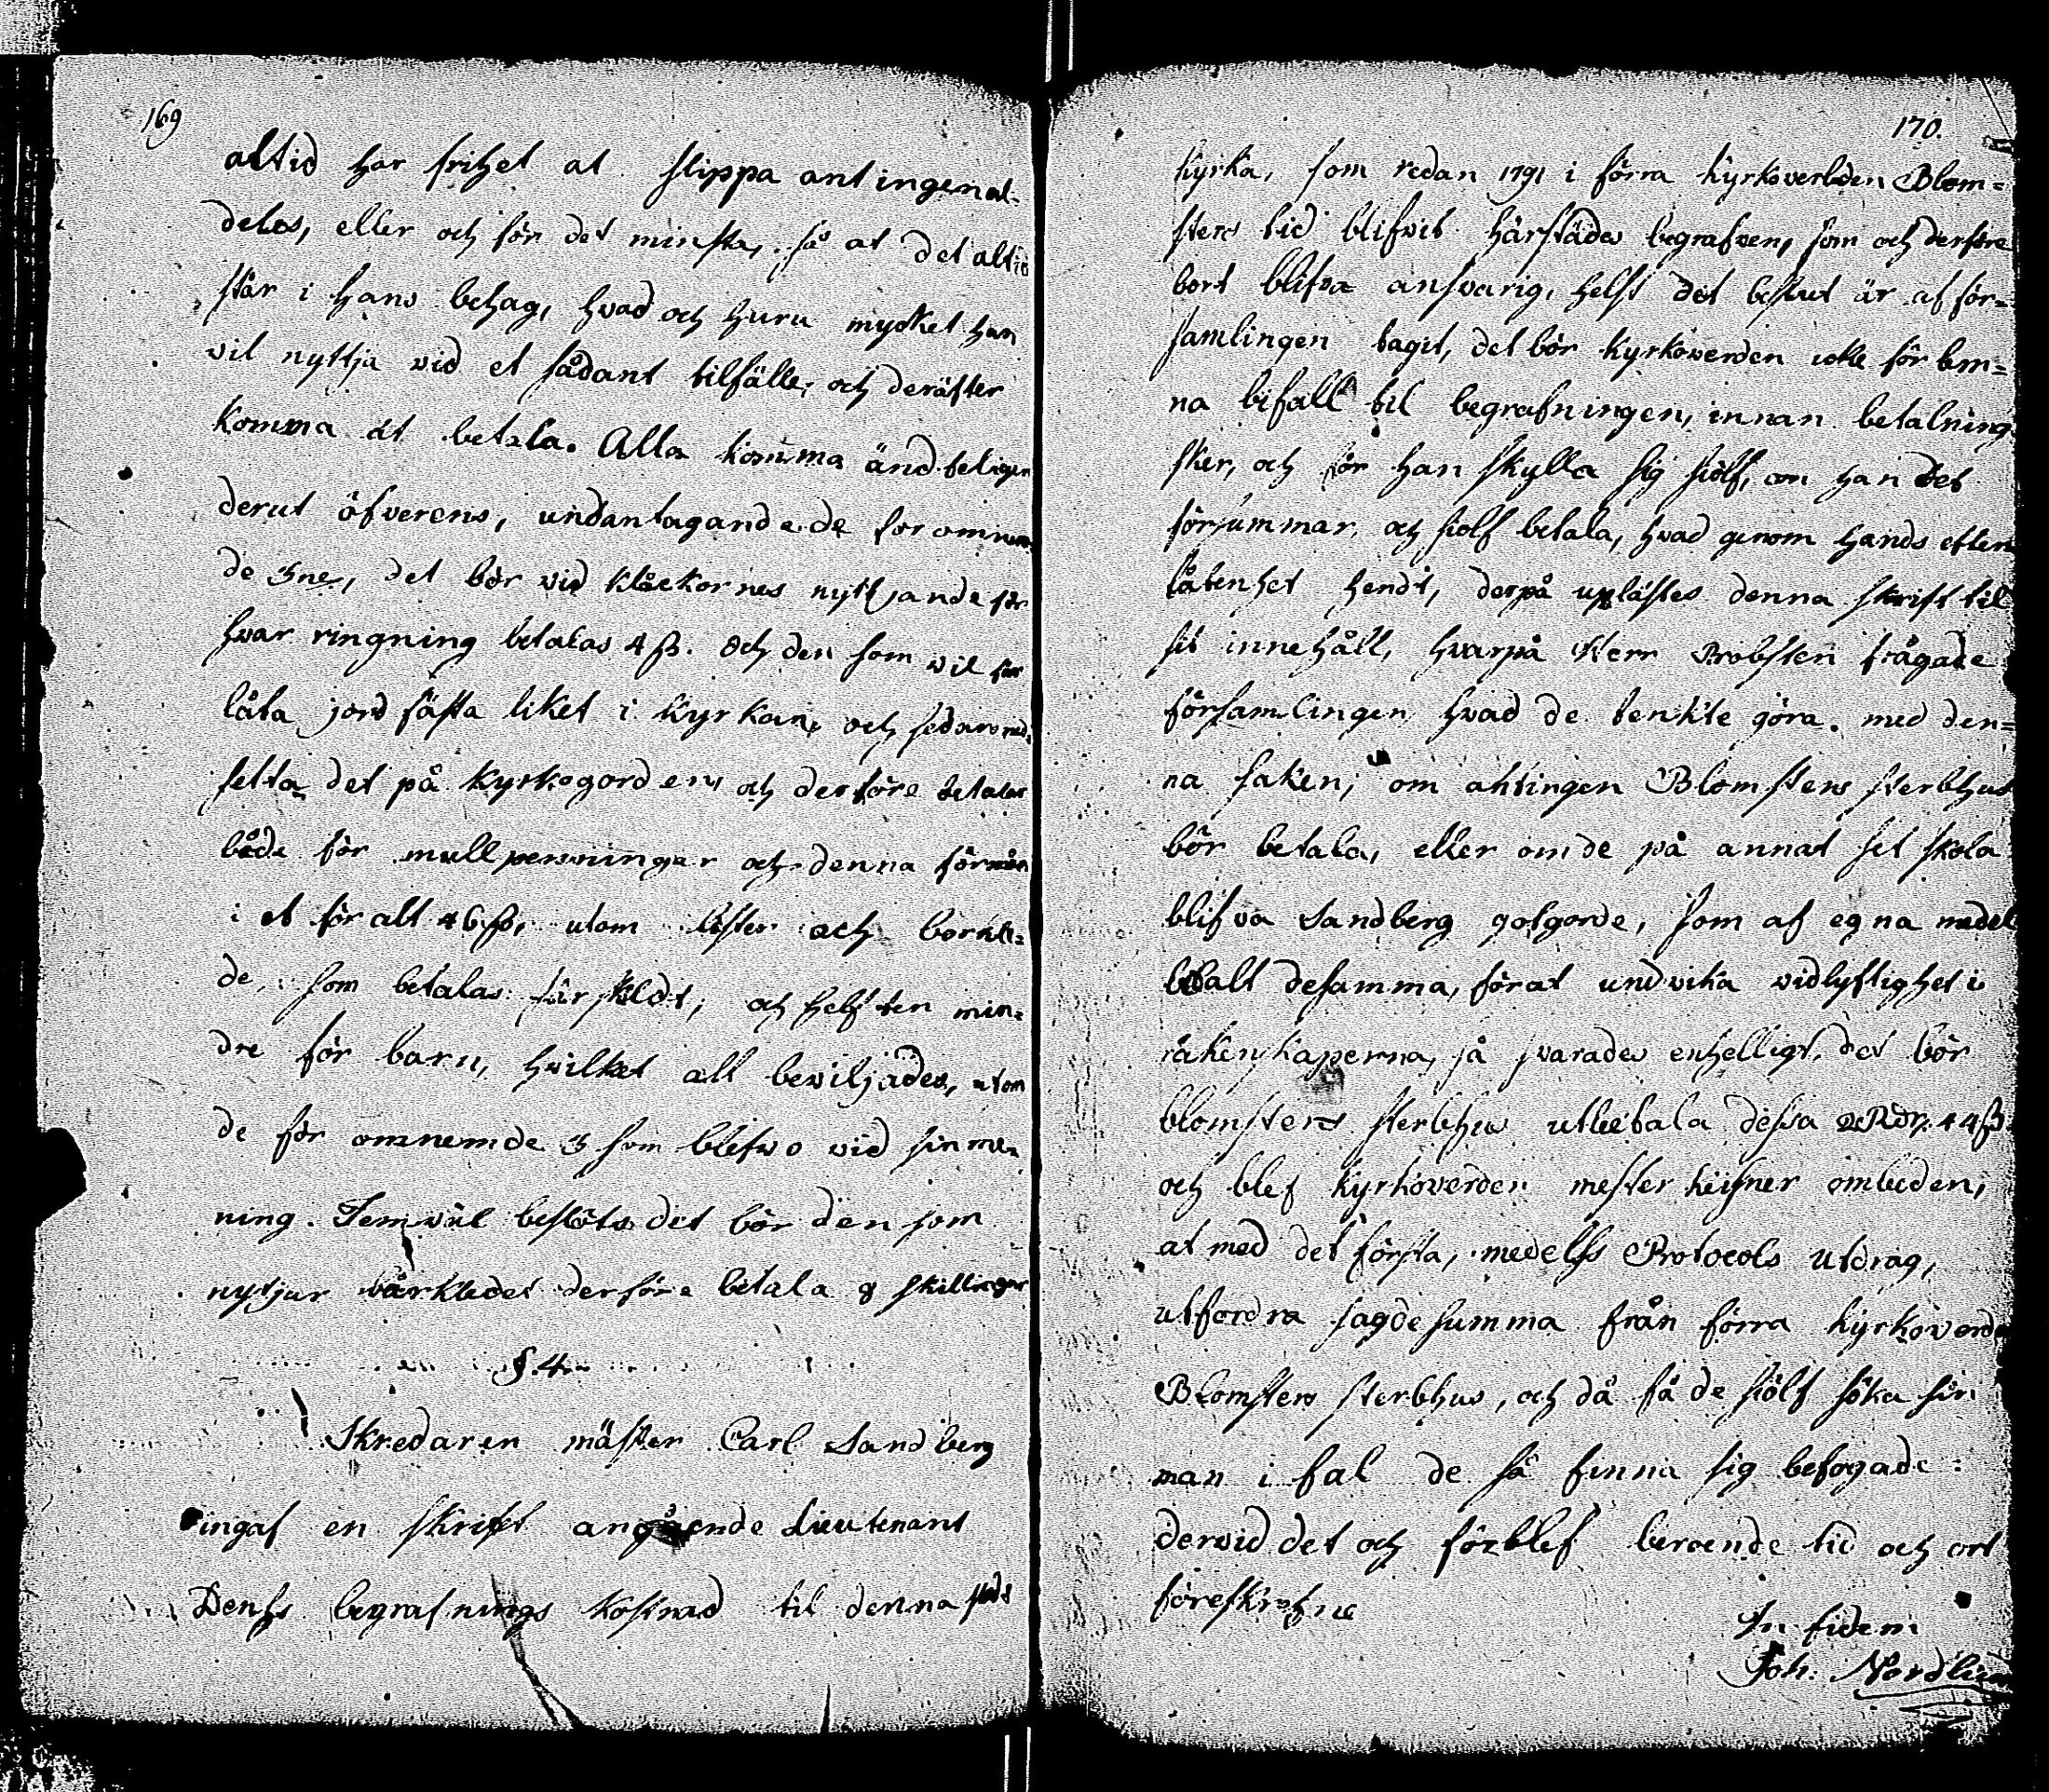 169
altid har frihet at slippa antingen al-
deles, eller och för det minsta, så at det altid
står i hans behag, hvad och huru mycket han
vil nyttja vid et sådant tilfälle, och deräfter
komma at betala. Alla komma ändteligen
derut öfverens, undantagande de foromnem
de 3ne, det bör vid klåckornes nyttjande för
hvar ringning betalas 4 ß. och den som vil för
låta jordfästa liket i kyrkan, och sedans ned
setta det på kyrkogorden, och derföre betalas
både för mullpenningar och denna förmån
i et för alt 46 ß, utom och borkle=
de, som betalas särskildt, och helften min=
dre för barn, hvilket alt beviljades, utom
de för omnemde 3 som blefvo vid sin me=
ning. Jemväl beslöts det bör den som
nytjar bårkledet derföre betala 8 skillingar
§. 4.
Skredaren mäster Carl Sandberg
ingaf en skrift angående Lieutenant
begrafnings kostnad til denna
170.
kyrka, som redan 1791 i förra kyrkoverden Blom=
sters tid blifvit härstädes begrafven, som och derföre
bort blifva ansvarig, helst det beslut är af för=
samlingen tagit, det bör kyrkoverden icke för lem=
na bifall til begrafningen, innan betalning
sker, och får han skylla sig sielf, om han det
försummar, och sielf betala, hvad genom hands efter
låtenhet hendt, derpå uplästes denna skrift til
sit innehåll, hvarpå Herr Probsten frågade
församlingen hvad de tenkte göra med den=
na saken, om antingen Blomsters sterbhus
bör betala, eller om de på annat set skola
blifva Sandberg gotgorde, som af egna medel
betalt desamma, förat undvika vidlyftighet i
räkenskaperna, så svarades enhelligt, det bör
blomsters sterbhus utbetala dessa 2 Rdr. 44 ß
och blef kyrkoverden mester ombeden,
at med det första, medelss Protocols utdrag,
utfordra sagde summa från förra kyrkoverde
Blomsters sterbhus, och då få de sielf söka sin
man i fal de så finna sig befogade:
dervid det och förblef beroende tid och ort
föreskrefne
In fidem
Joh. Nordlin